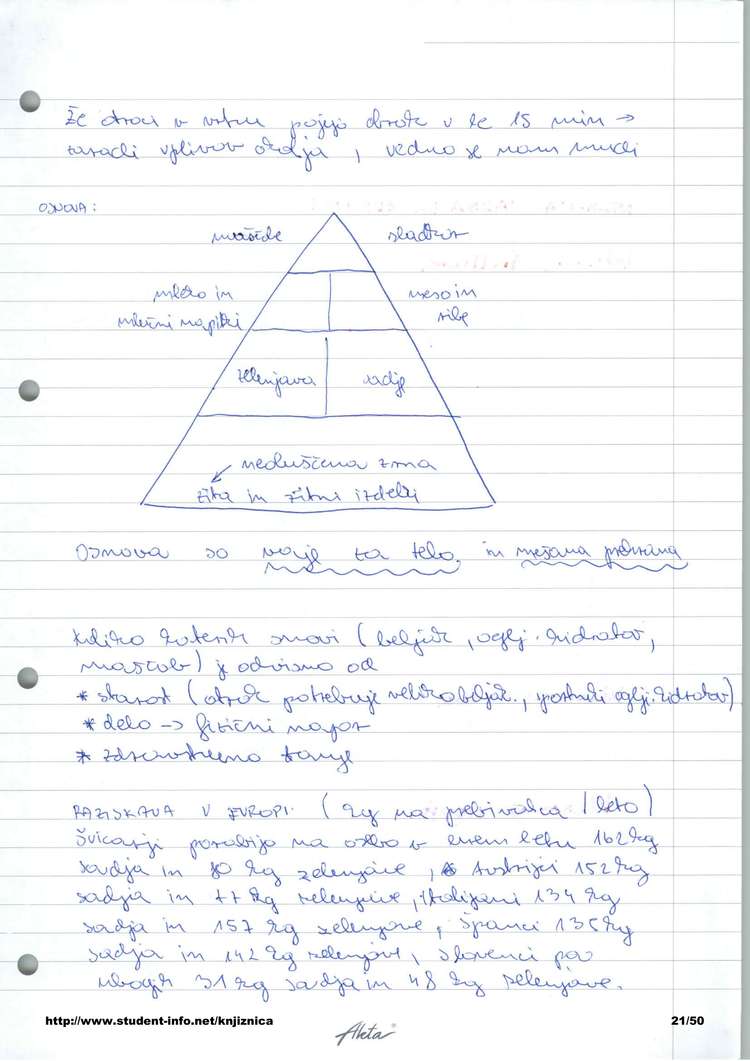 Že otroci v vrtcu pojejo obrok v le 15 min →
zaradi vplivov okolja, vedno se nam mudi
OSNOVA:
maščobe sladkor
mleko in mesoin
mlečni napitki ribe
zelenjava sadje
neoluščena zrna
žita in žitni izdelki
Osnova so voje za telo, in mešana prehrana
Koliko katerih snovi (beljak., oglj. hidratov,
maščob) je odvisno od
* starost (otrok potrebuje veliko beljak., oglj. hidratov)
* delo -> fizični napor
* zdravstveno stanje
RAZISKAVA V EVROPI: (kg na prebivalca / leto)
Švicarji porabijo na osebo v enem letu 162 kg
sadja in 80 kg zelenjave, Avstrijci 152 kg
sadja in 77 kg zelenjave, italijani 134 kg
sadja in 157 kg zelenjave, Španci kg
sadja in 142 kg zelenjave, Slovenci pa
ubogih 31 kg sadja in 48 kg zelenjave.
http://www.student-info.net/knjiznica 21/50
Aleta